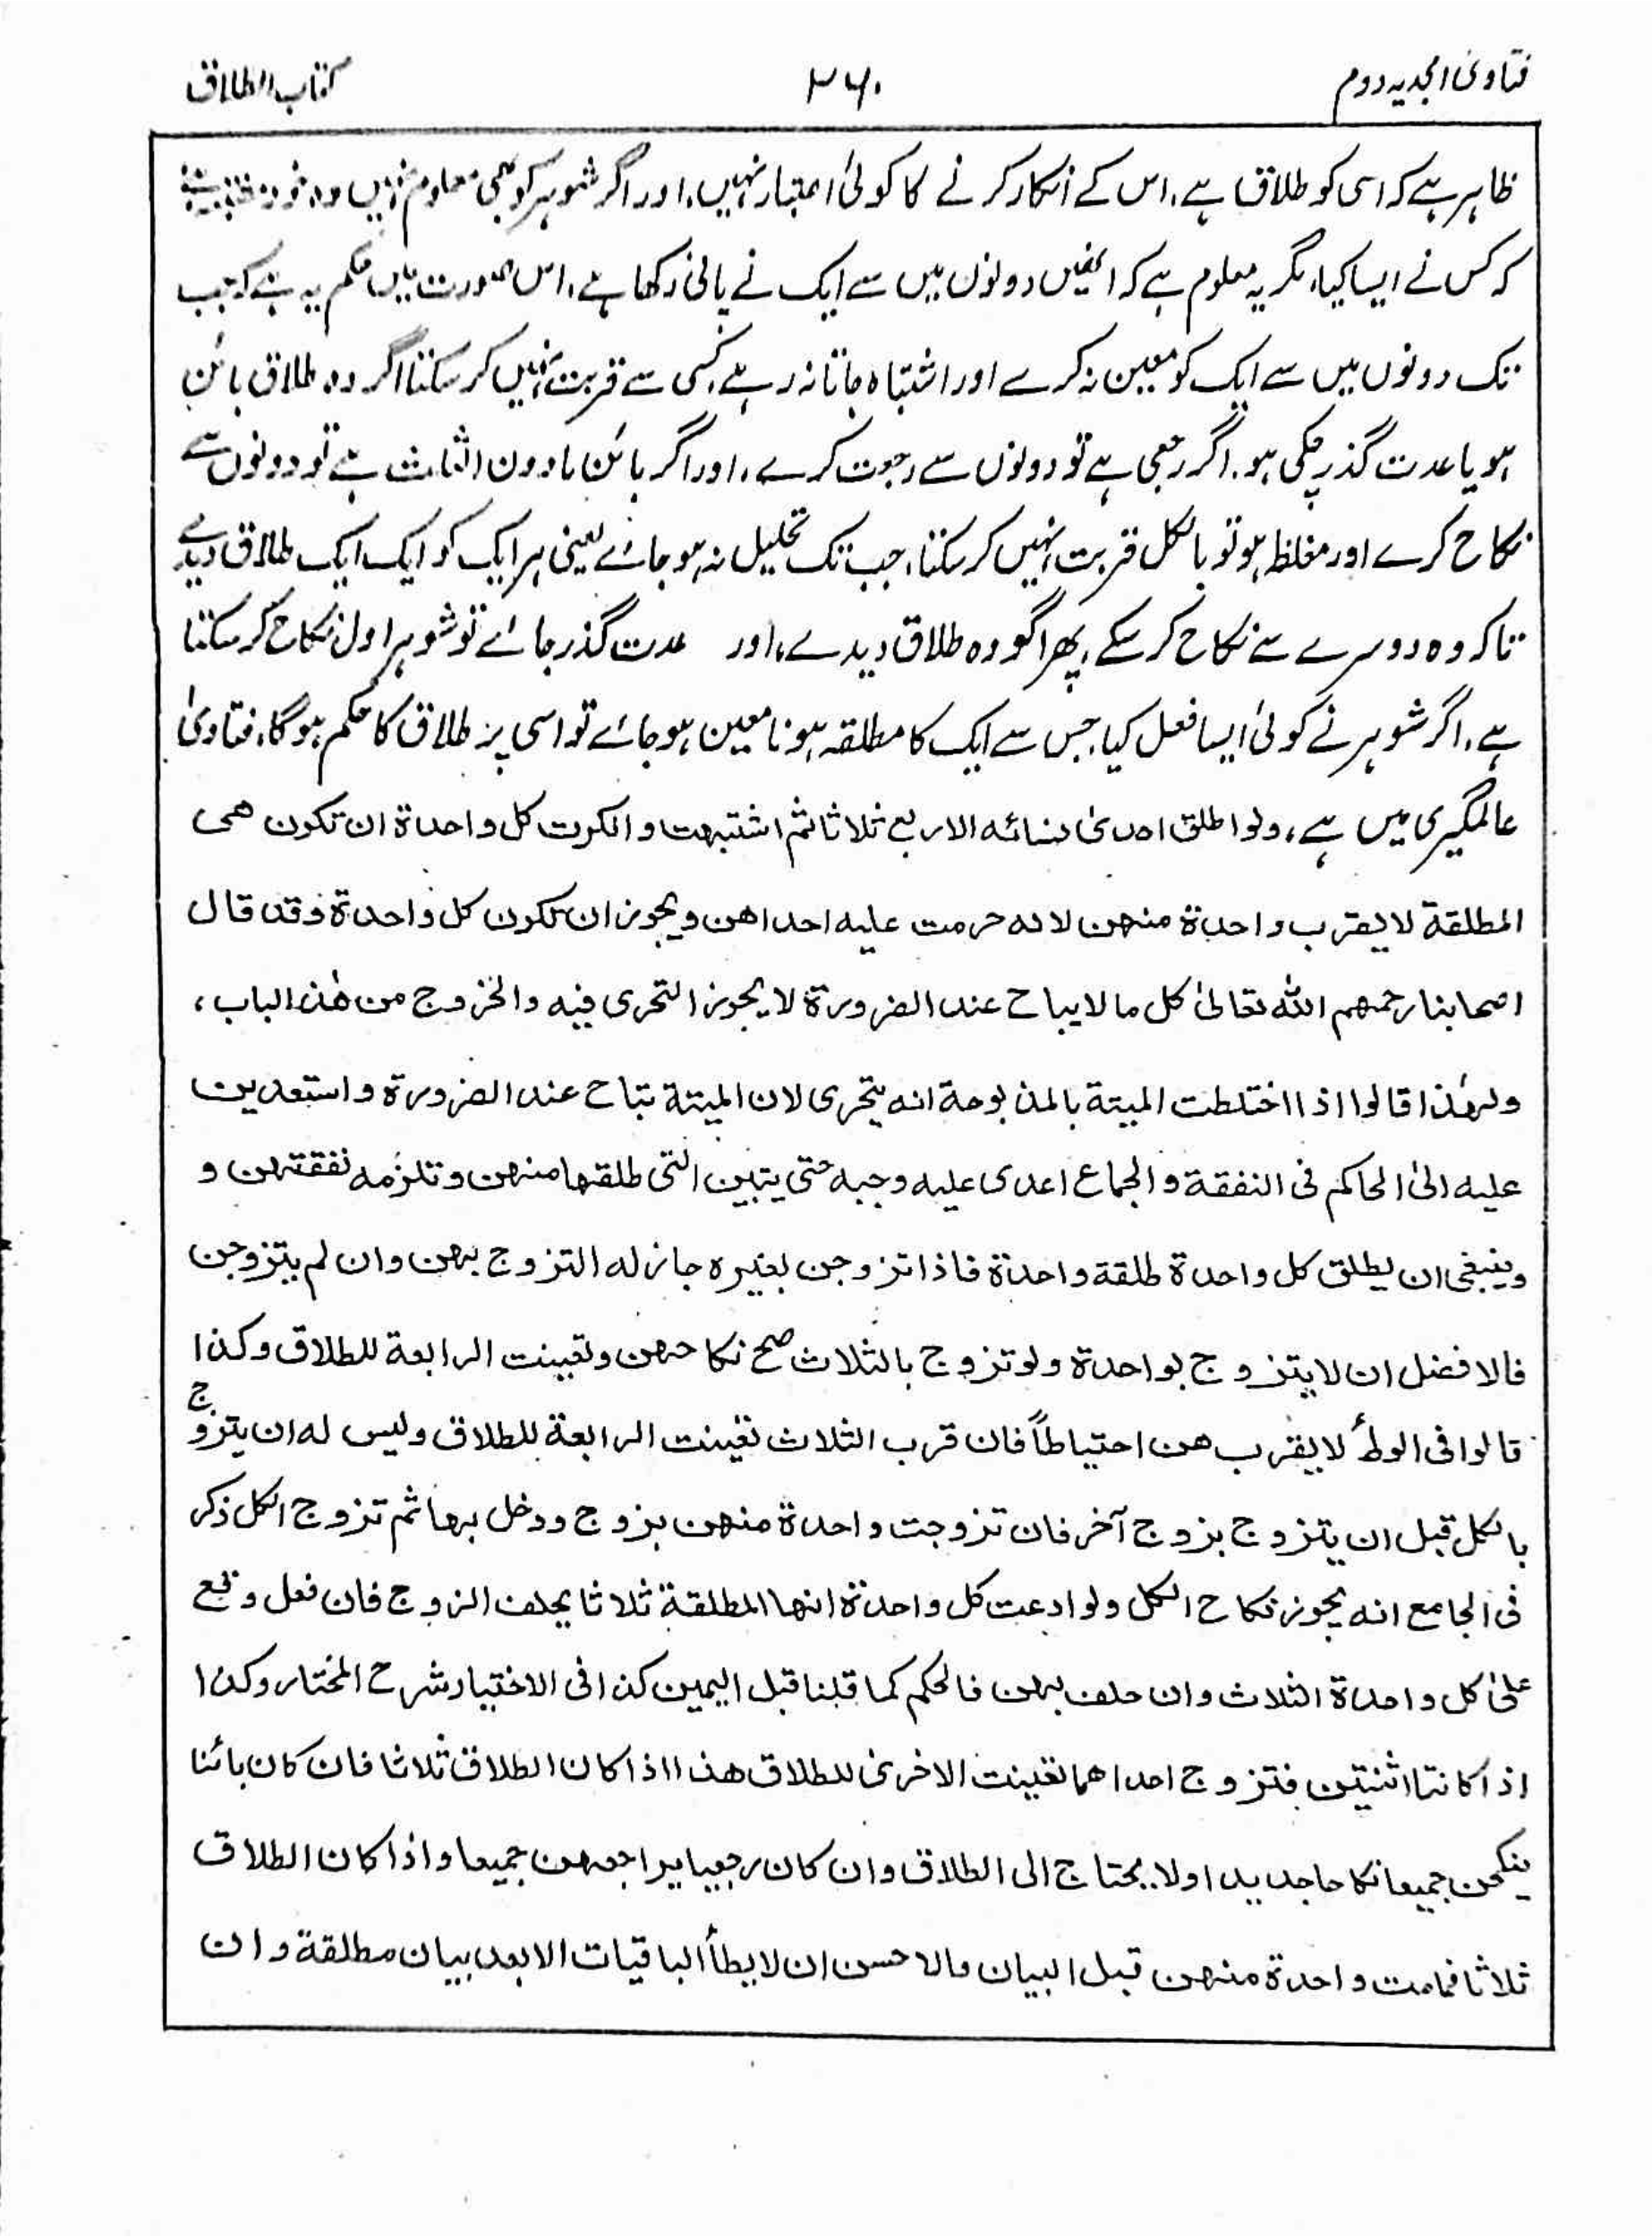 فتاویٰ امجدیہ دوم
۲۶۰
کتاب الطلاق
ظاہر ہے کہ اسی کو طلاق ہے، اس کے انکار کرنے کا کوئی اعتبار نہیں، اور اگر شوہر کو بھی معلوم نہیں وہ خود
کہ کس نے ایسا کیا، مگر یہ معلوم ہے کہ انھیں دونوں میں سے ایک نے پانی رکھا ہے، اس صورت میں حکم یہ ہے کہ جب
تک دونوں میں سے ایک کو معین نہ کرے اور اشتباہ جاتا نہ رہے کسی سے قربت نہیں کر سکتا اگر وہ طلاق بائن
ہو یا عدت گذر چکی ہو۔ اگر رجعی ہے تو دونوں سے رجعت کرے، اور اگر بائن مادون الثلاث ہے تو دونوں سے
نکاح کرے اور مغلظہ ہو تو بالکل قربت نہیں کر سکتا، جب تک تحلیل نہ ہو جائے یعنی ہر ایک کو ایک ایک طلاق دیدے
تاکہ وہ دوسرے سے نکاح کر سکے، پھر اگر وہ طلاق دیدے، اور عدت گذر جائے تو شوہر اول نکاح کر سکتا
ہے، اگر شوہر نے کوئی ایسا فعل کیا، جس سے ایک کا مطلقہ ہونا معین ہو جائے تو اسی پر طلاق کا حکم ہوگا، فتاویٰ
عالمگیری میں ہے، ولو اطلق احدیٰ نسائہ الاربع ثلاثا ثم اشتبہت و انکرت کل واحدۃ ان تکون ھی
المطلقۃ لا یقرب واحدۃ منھن لانہ حرمت علیہ احداھن ویجوز ان تکون کل واحدۃ وقد قال
اصحابنا رحمھم اللہ تعالیٰ کل ما لا یباح عند الضرورۃ لا یجوز التحری فیہ والخروج من ھٰذا الباب،
ولھٰذا قالوا اذا اختلطت المیتۃ بالمذبوحۃ انہ یتحری لان المیتۃ تباح عند الضرورۃ و استعدین
علیہ الیٰ الحاکم فی النفقۃ و الجماع اعدی علیہ وحبہ حتی یتبین التی طلقھا منھن وتلزمہ نفقتھن و
وینبغی ان یطلق کل واحدۃ طلقۃ واحدۃ فاذا تزوجن بغیرہ جاز لہ التزوج بھن وان لم یتزوجن
فالافضل ان لا یتزوج بواحدۃ ولو تزوج بالثلاث صح نکاحھن وتعینت الرابعۃ للطلاق وکذا
قالوا فی الوطأ لا یقرب ھن احتیاطاً فان قرب الثلاث تعینت الرابعۃ للطلاق ولیس لہ ان یتزوج
بالکل قبل ان یتزوج بزوج آخر فان تزوجت واحدۃ منھن بزوج ودخل بھا ثم تزوج الکل ذکر
فی الجامع انہ یجوز نکاح الکل ولو ادعت کل واحدۃ انھا المطلقۃ ثلاثا یحلف الزوج فان نعل وقع
علیٰ کل واحدۃ الثلاث وان حلف لہن فالحکم کما قلنا قبل الیمین کذا فی الاختیار شرح المختار وکذا
اذا کانتا اثنتین فتزوج احداھما تعینت الاخریٰ للطلاق ھذا اذا کان الطلاق ثلاثا فان کان بائنا
ینکحن جمیعا نکاحا جدیدا ولا یحتاج الی الطلاق وان کان رجعیا یراجعھن جمیعا واذا کان الطلاق
ثلاثا فماتت واحدۃ منھن قبل البیان والاحسن ان لا یطأ الباقیات الا بعد بیان مطلقۃ وان